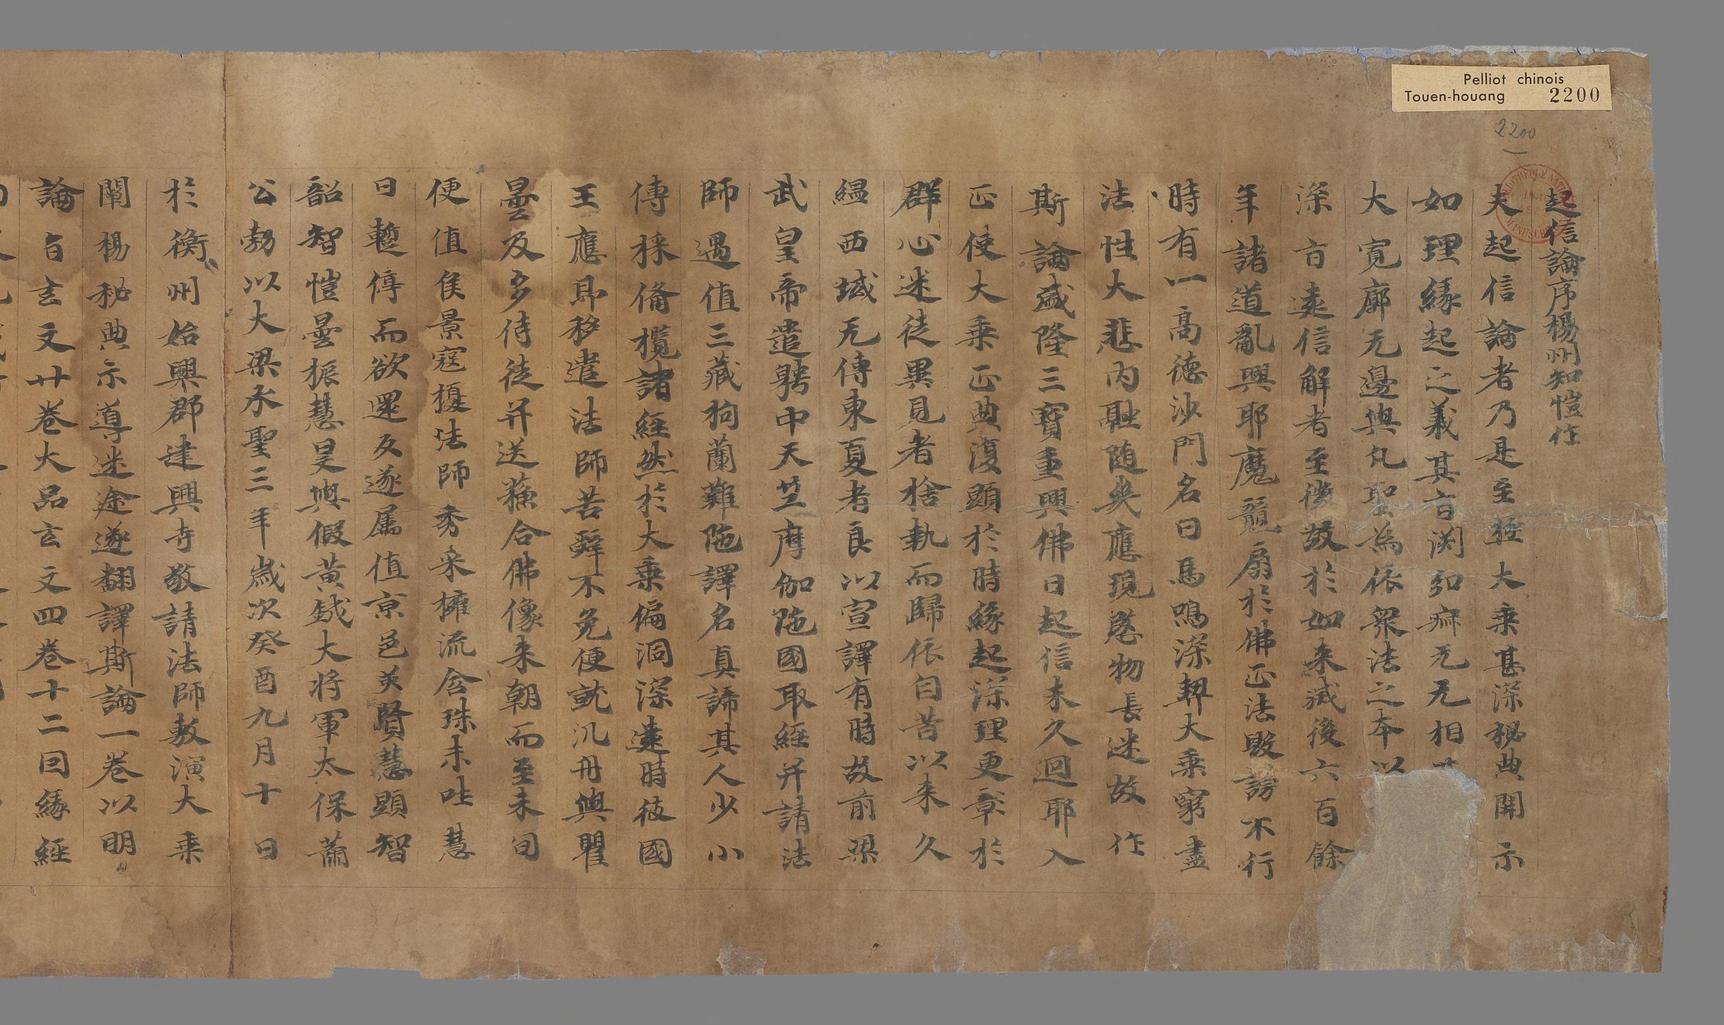 Pelliot chinois
Touen-houang 2200
2200
起信論序楊州知愷作
夫起信論者乃是至極大乘甚深秘典開示
如理緣起之義其旨渕弘寂无无相
大寛廓无邊與凡聖為依衆法之本以
深旨遠信解者至微故於如来滅後六百餘
年諸道亂興耶魔競扇於佛正法毀謗不行
時有一高德沙門名曰馬鳴深契大乘窮盡
法性大悲内融随矣應現愍物長迷故作
斯論盛隆三寶重興佛日起信未久迴耶入
正使大乘正典復顯於時緣起深理更彰於
群心迷徒異見者捨執而歸依自昔以来久
緼西域无傳東夏者良以宣譯有時故前梁
武皇帝遣聘中天竺摩伽陁國取經并請法
師遇值三藏狗蘭難陁譯名真諦其人少小
傳採俻欖諸經然於大乘偏洞深遠時彼國
王應即移遣法師苦辞不免便就汎舟與瞿
曇及多侍徒并送蘓合佛像来朝而至未旬
便值侯景寇擾法師秀采擁流含珠未吐慧
日蹔停而欲還反遂属值京邑英賢慧顯智
韶智愷曇振慧旻與假黄鉞大将軍太保蕭
公勃以大梁承聖三年歲次癸酉九月十日
於衡州始興郡建興寺敬請法師敷演大乘
闡楊秘典示導迷途遂翻譯斯論一卷以明
論旨玄文廿卷大品玄文四卷十二囙緣經